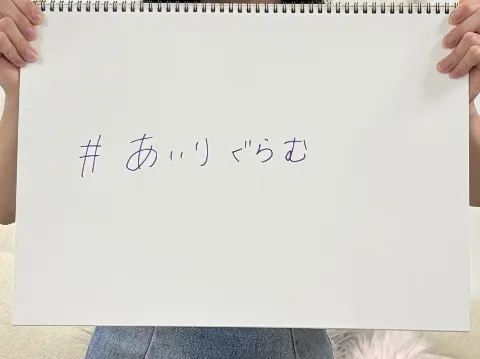 #あいりぐらむ